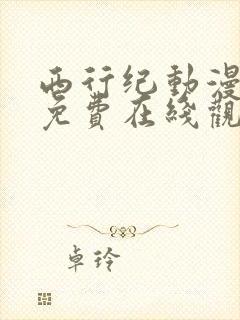 西行纪動漫
免費在綫觀
卓玲